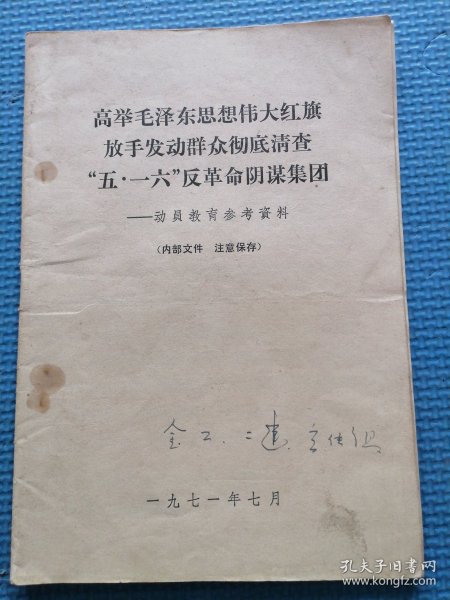 高举毛泽东思想伟大红旗
放手发动群众彻底清查
“五·一六”反革命阴谋集团
——动員教育参考資料
(内部文件 注意保存)
金工、二连
一九七一年七月
孔夫子旧书网
www.kongfz.com